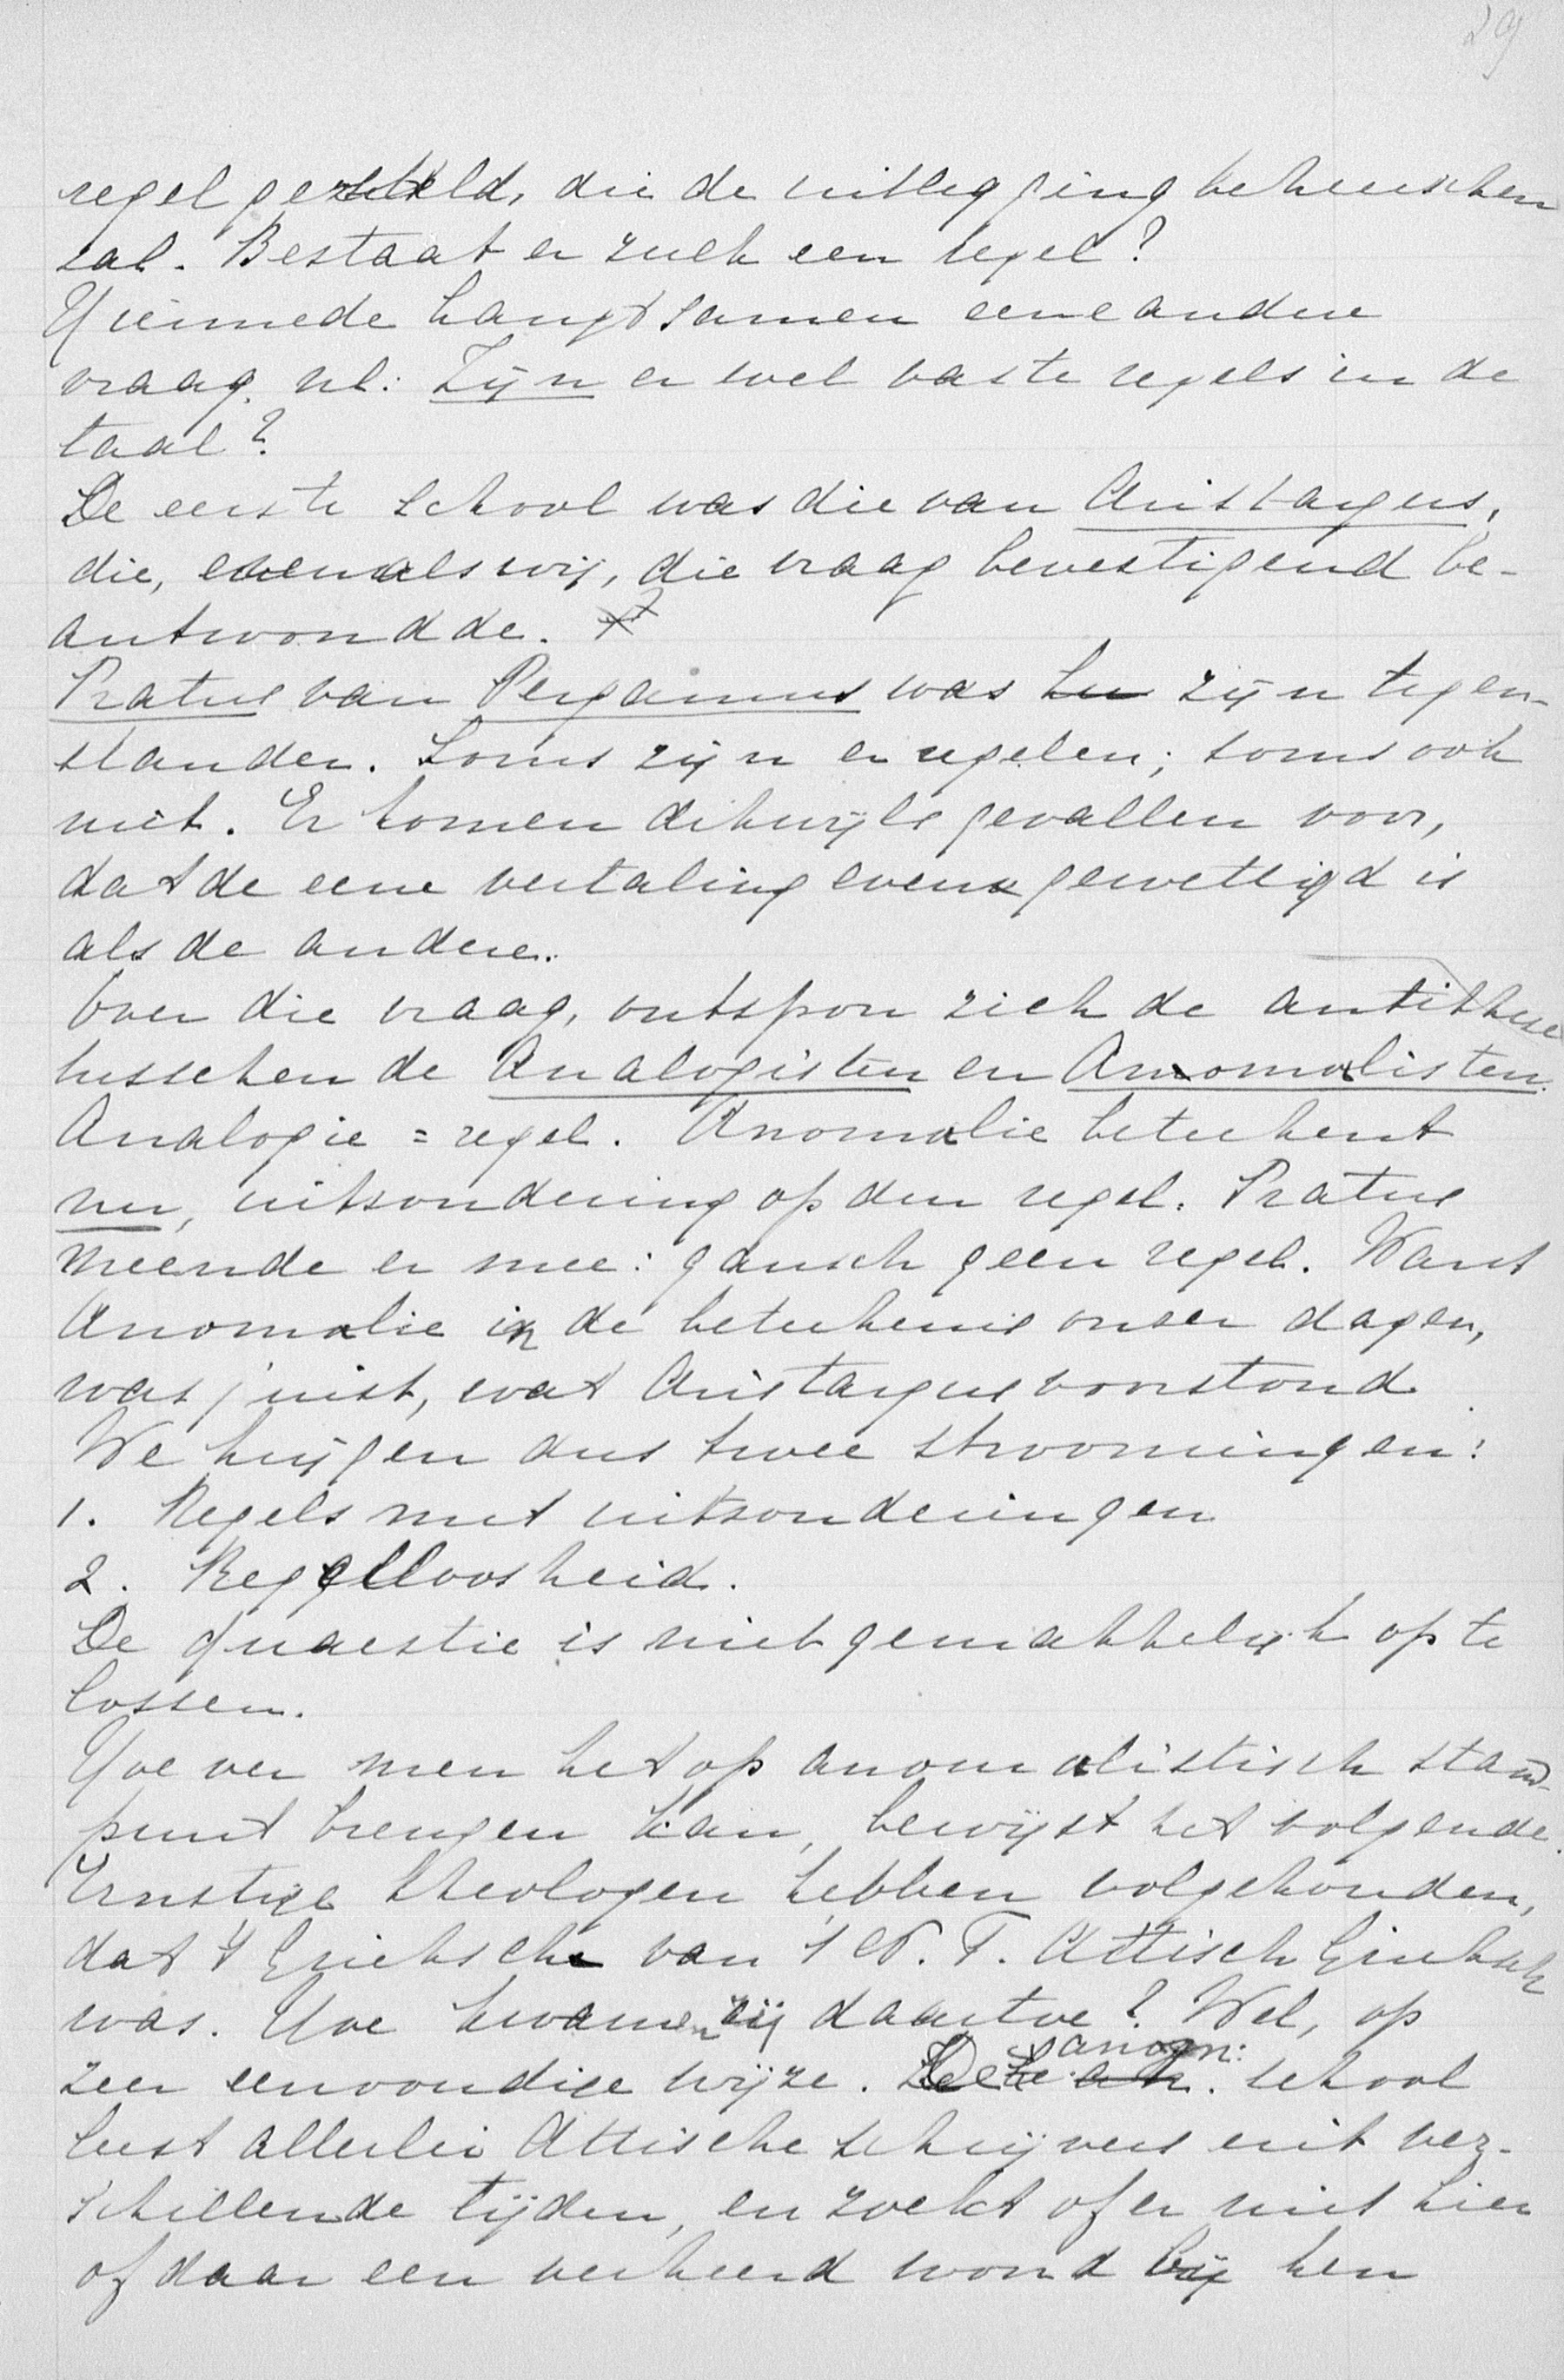 29
regel gesteld, die de uitlegging beheerschen
zal. Bestaat er zulk een regel?
Hiermede hangt samen eene andere
vraag, nl: Zijn er wel vaste regels in de
taal?
De eerste school was die van Aristargus,
die, evenals wij, die vraag bevestigend be-
antwoordde.
Pratus van Pergamus was zijn tegen-
stander. Soms zijn er regelen; soms ook
niet. Er komen dikwijls gevallen voor,
dat de eene vertaling even gewettigd is
als de andere.
Over die vraag, ontspon zich de antithese
tusschen de Analogisten en Anomalisten.
Analogie = regel. Anomalie beteekent
nu, uitzondering op den regel. Pratus
meende er mee: gansch geen regel. Want
Anomalie in de beteekenis onzer dagen,
was juist, wat Aristargus voorstond.
We krijgen dus twee stroomingen:
1. Regels met uitzonderingen
2. Regelloosheid.
De quaestie is niet gemakkelijk op te
lossen.
Hoe ver men het op anomalistisch stand-
punt brengen kan, bewijst het volgende.
Ernstige theologen hebben volgehouden,
dat 't Grieksch van 't N. T. Attisch Grieksch
was. Hoe kwamen zij daartoe? Wel, op
zeer eenvoudige wijze. Deze anom: school
leest allerlei Attische schrijvers uit ver-
schillende tijden, en zoekt of er niet hier
of daar een verkeerd woord bij hen